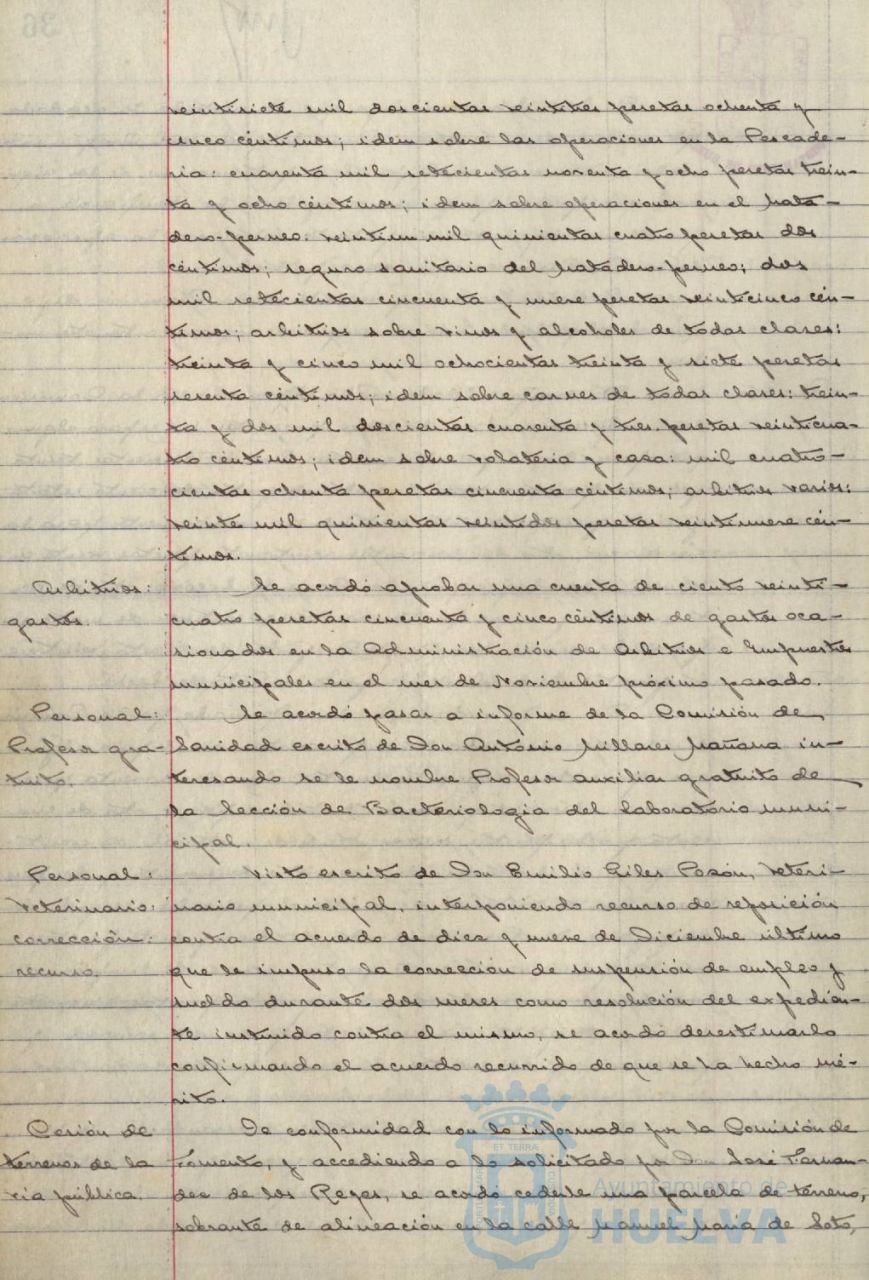 veintisiete mil doscientas veintitres pesetas ochenta y
cinco céntimos; idem sobre las operaciones en la Pescade-
ria: cuarenta mil setecientas noventa y ocho pesetas trein-
ta y ocho céntimos; idem sobre operaciones en el Mata-
dero-perneo: veintiun mil quinientas cuatro pesetas dos
céntimos; seguro sanitario del Matadero-perneo; dos
mil setecientas cincuenta y nueve pesetas veinticinco cén-
timos; arbitrios sobre vinos y alcoholes de todas clases:
treinta y cinco mil ochocientas treinta y siete pesetas
sesenta céntimos; idem sobre carnes de todas clases: trein-
ta y dos mil doscientas cuarenta y tres pesetas veinticua-
tro céntimos; idem sobre volateria y casa: mil cuatro-
cientas ochenta pesetas cincuenta céntimos; arbitrios varios:
veinte mil quinientas veintidos pesetas veintinueve cén-
timos.
Arbitrios:
gastos.
Se acordó aprobar una cuenta de ciento veinti-
cuatro pesetas cincuenta y cinco céntimos de gastos oca-
sionados en la Administración de Arbitrios e Impuestos
municipales en el mes de Noviembre próximo pasado.
Personal:
Profesor gra-
tuito.
Se acordó pasar a informe de la Comisión de
Sanidad escrito de Don Antonio Millares Mañana in-
teresando se le nombre Profesor auxiliar gratuito de
la Sección de Bacteriologia del Laboratorio muni-
cipal.
Personal:
Veterinario:
corrección:
recurso.
Visto escrito de Don Emilio Giles Pozón, Veteri-
nario municipal, interponiendo recurso de reposición
contra el acuerdo de diez y nueve de Diciembre último
que le impuso la corrección de suspensión de empleo y
sueldo durante dos meses como resolución del expedien-
te instruido contra el mismo, se acordó desestimarlo
confirmando el acuerdo recurrido de que se ha hecho mé-
rito.
Cesión de
terrenos de la
via pública.
De conformidad con lo informado por la Comisión de
Fomento, y accediendo a lo solicitado por Don José Fernan-
dez de los Reyes, se acordó cederle una parcela de terreno,
sobrante de alineación en la calle Manuel Maria de Soto,
ET TERRA
Ayuntamiento de
HUELVA